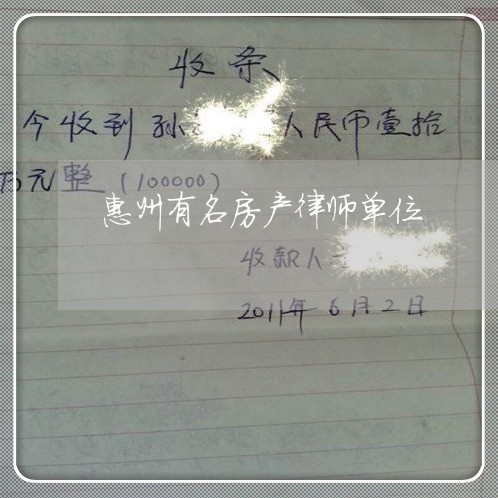 收条
今收到孙 人民币壹拾
万元整（100000）
惠州有名房产律师单位
收款人
2011年6月2日